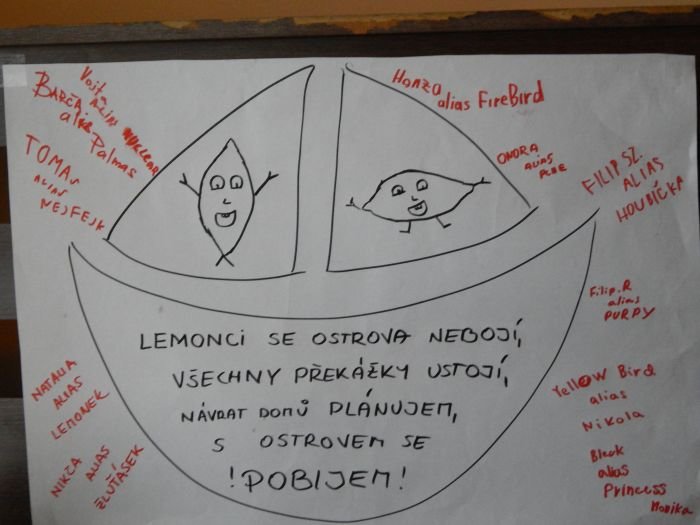 Vojta
alias
NUCLEAR
BARČA
alias
Palmas
TOMA
ALIAS
NEJFEJK
Honza
alias FireBird
ONDRA
ALIAS
FILIP.SZ.
ALIAS
HOUBIČKA
Filip.R
alias
PURPY
LEMONCI SE OSTROVA NEBOJÍ,
VŠECHNY PŘEKÁŽKY USTOJÍ,
NÁVRAT DOMŮ PLÁNUJEM,
S OSTROVEM SE
!POBIJEM!
NATALIA
ALIAS
LEMONEK
NIKČA
ALIAS
ŽLUŤÁSEK
Yellow Bird
alias
Nikola
Black
alias
Princess
Monika